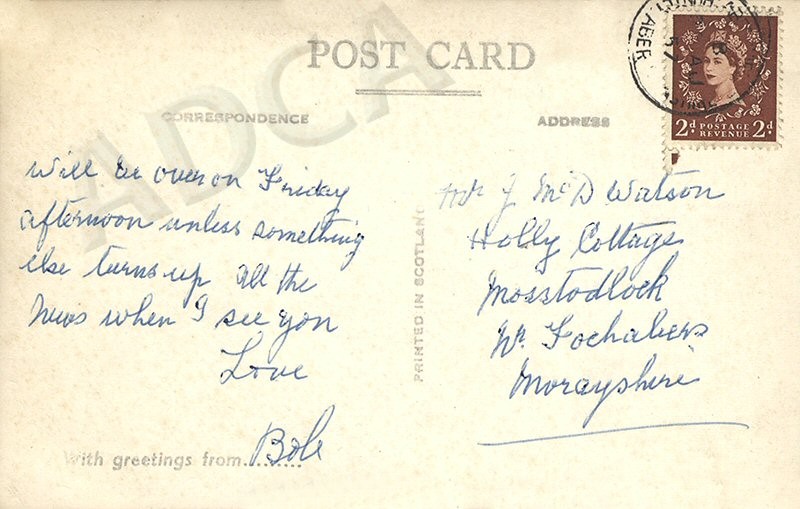 POST CARD
CORRESPONDENCE
ADDRESS
2d POSTAGE REVENUE 2d
HUNTLY ABER
Will be over on Friday
afternoon unless something
else turns up All the
News when I see you
Love
With greetings from..........
PRINTED IN SCOTLAND
Mr J McD Watson
Holly Cottage
Mosstodlock
Nr. Fochabers
Morayshire
ADCA